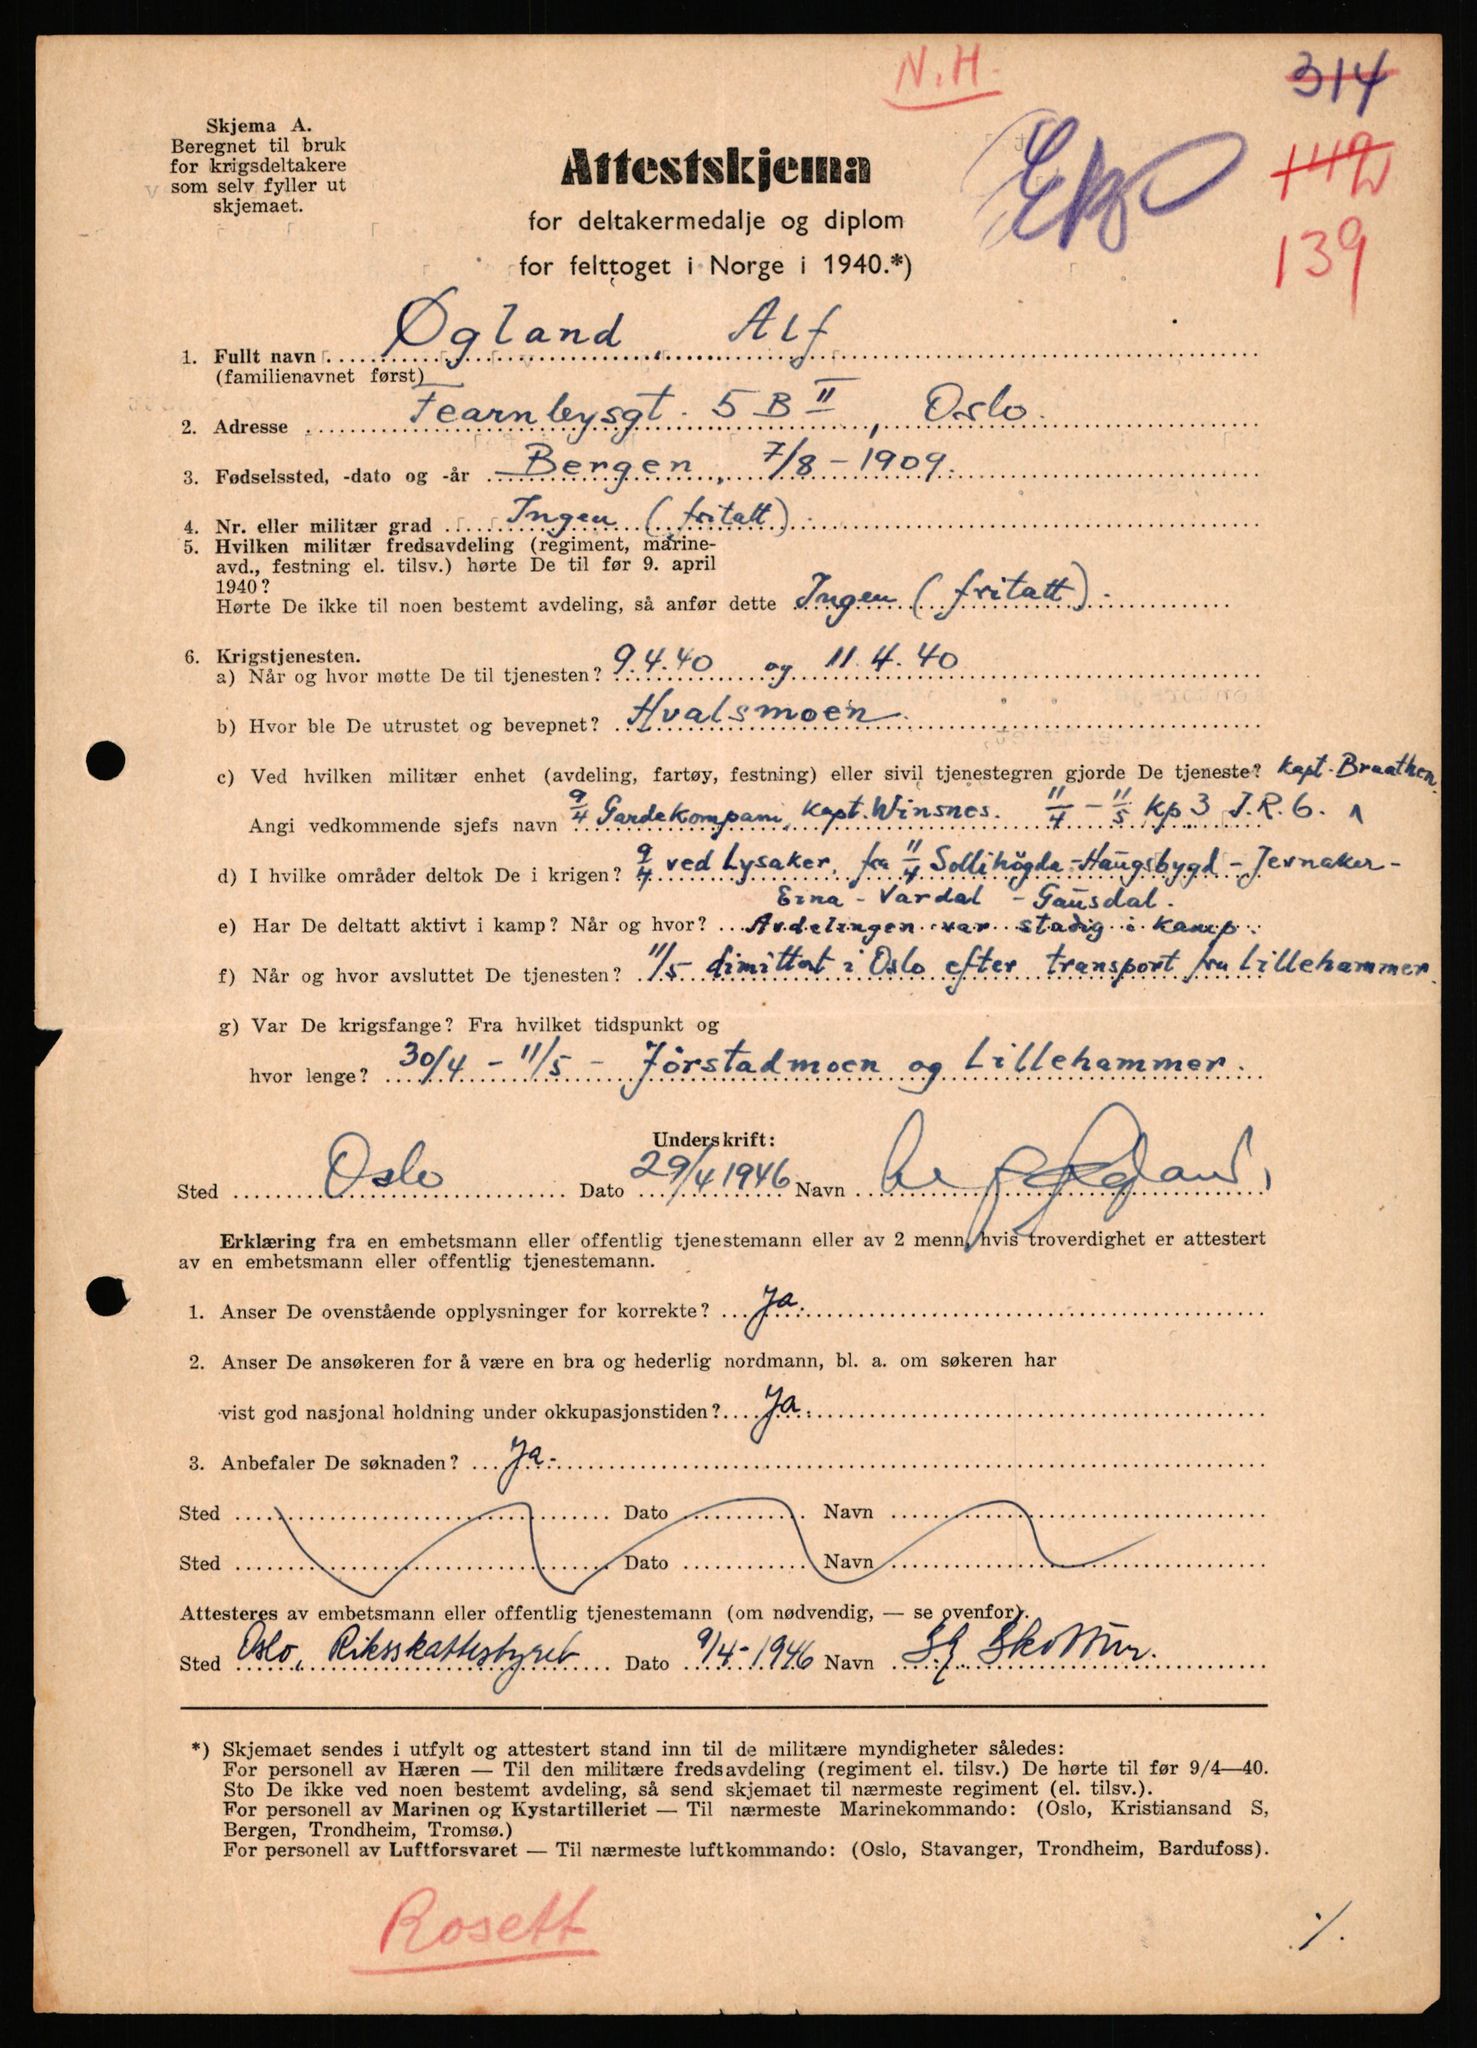 N.H.
314
Skjema A.
Beregnet til bruk
for krigsdeltakere
som selv fyller ut
skjemaet.
Attestskjema
for deltakermedalje og diplom
for felttoget i Norge i 1940.*)
139
1. Fullt navn Øgland, Alf
(familienavnet først)
2. Adresse Fearnleysgt. 5 B II, Oslo.
3. Fødselssted, -dato og -år Bergen, 7/8-1909.
4. Nr. eller militær grad Ingen (fritatt)
5. Hvilken militær fredsavdeling (regiment, marine-
avd., festning el. tilsv.) hørte De til før 9. april
1940?
Hørte De ikke til noen bestemt avdeling, så anfør dette Ingen (fritatt).
6. Krigstjenesten.
a) Når og hvor møtte De til tjenesten? 9.4.40 og 11.4.40
b) Hvor ble De utrustet og bevepnet? Hvalsmoen.
c) Ved hvilken militær enhet (avdeling, fartøy, festning) eller sivil tjenestegren gjorde De tjeneste? Kapt. Braathen.
Angi vedkommende sjefs navn 9/4 Gardekompani, Kapt. Winsnes. 11/4 - 11/5 Kp 3 J.R.6.
d) I hvilke områder deltok De i krigen? 9/4 ved Lysaker, fra 11/4 Sollihögda - Haugsbygd - Jevnaker -
Eina - Vardal - Gausdal.
e) Har De deltatt aktivt i kamp? Når og hvor? Avdelingen var stadig i kamp.
f) Når og hvor avsluttet De tjenesten? 11/5 dimittert i Oslo efter transport fra Lillehammer.
g) Var De krigsfange? Fra hvilket tidspunkt og
hvor lenge? 30/4 - 11/5 - Jörstadmoen og Lillehammer.
Underskrift:
Sted Oslo Dato 29/4 1946 Navn Alf Øgland
Erklæring fra en embetsmann eller offentlig tjenestemann eller av 2 menn, hvis troverdighet er attestert
av en embetsmann eller offentlig tjenestemann.
1. Anser De ovenstående opplysninger for korrekte? Ja.
2. Anser De ansøkeren for å være en bra og hederlig nordmann, bl. a. om søkeren har
vist god nasjonal holdning under okkupasjonstiden? Ja.
3. Anbefaler De søknaden? Ja.
Sted Dato Navn
Sted Dato Navn
Attesteres av embetsmann eller offentlig tjenestemann (om nødvendig, — se ovenfor).
Sted Oslo, Riksskattestyret Dato 9/4-1946 Navn
*) Skjemaet sendes i utfylt og attestert stand inn til de militære myndigheter således:
For personell av Hæren — Til den militære fredsavdeling (regiment el. tilsv.) De hørte til før 9/4—40.
Sto De ikke ved noen bestemt avdeling, så send skjemaet til nærmeste regiment (el. tilsv.).
For personell av Marinen og Kystartilleriet — Til nærmeste Marinekommando: (Oslo, Kristiansand S,
Bergen, Trondheim, Tromsø.)
For personell av Luftforsvaret — Til nærmeste luftkommando: (Oslo, Stavanger, Trondheim, Bardufoss).
Rosett